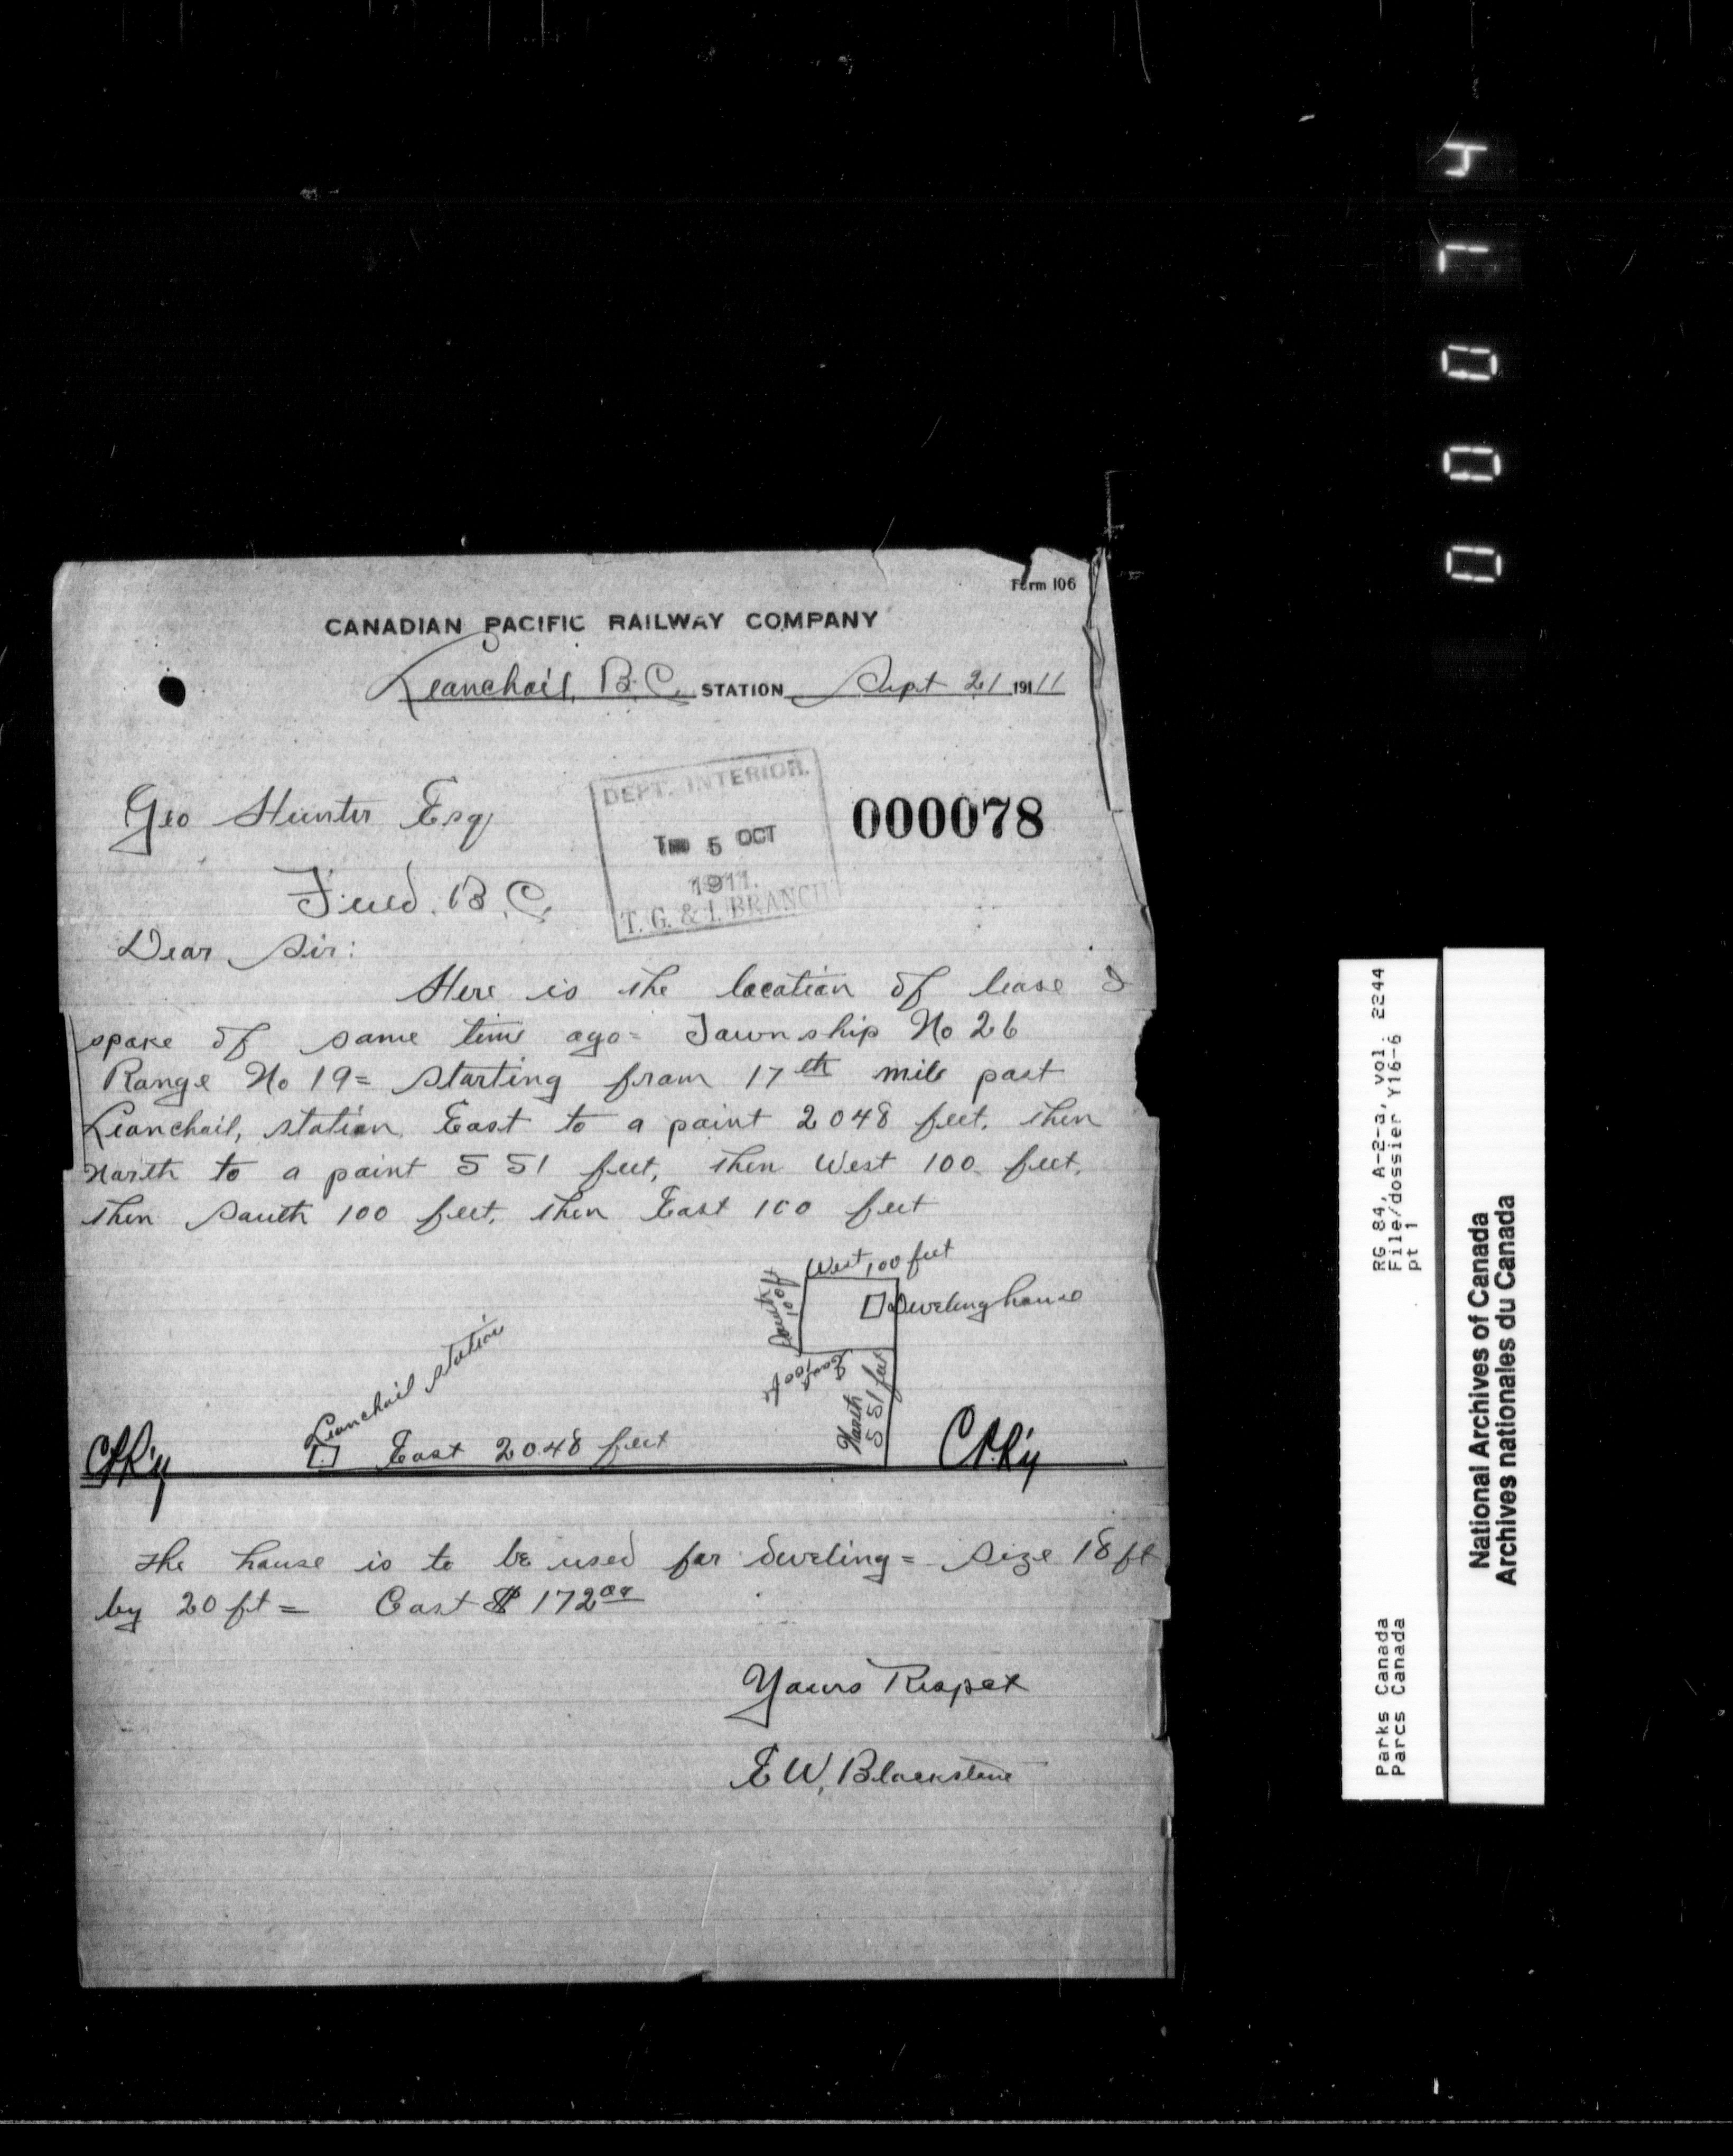 Form 106
CANADIAN PACIFIC RAILWAY COMPANY
Leanchoil, B.C. STATION Sept 21 1911
DEPT. INTERIOR.
5 OCT
1911.
T. G. & I. BRANCH
000078
Geo Hunter Esq
Field. B.C.
Dear Sir:
Here is the location of lease I
spoke of some time ago= Township No 26
Range No 19= Starting from 17th mile post
Leanchoil, station East to a point 2048 feet. then
North to a point 551 feet, then West 100 feet,
then South 100 feet, then East 100 feet
West 100 feet
South 100 ft
Dweling house
East 100 ft
North 551 feet
Leanchoil station
CPR'y East 2048 feet CPR'y
The house is to be used for dweling= size 18 ft
by 20 ft= Cost $172.00
Yours Respet
E W, Blackstone
00074
RG 84, A-2-a, vol. 2244
File/dossier Y16-6
pt 1
Parks Canada
Parcs Canada
National Archives of Canada
Archives nationales du Canada